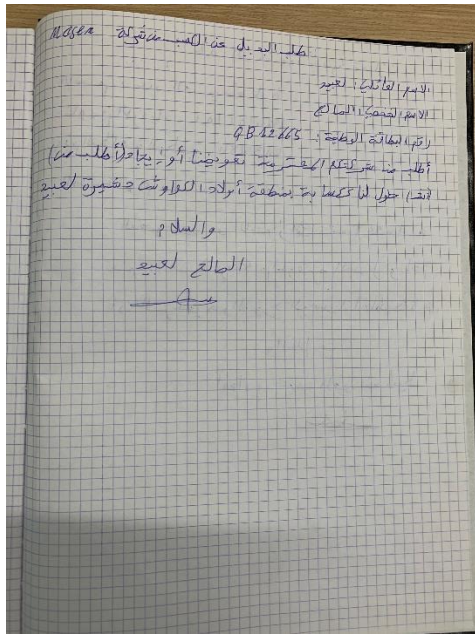 طلب البديل عن الكسب من شركة Mosen
الاسم العائلي: لعبيد
الاسم الشخصي: الصالح
رقم البطاقة الوطنية: GB12665
أطلب من شركتكم المحترمة تعويضنا أو إيجاد (أطلب من)
حلول لنا ككسابة بمنطقة أولاد دشيرة لعبيد
والسلام
الصالح لعبيد